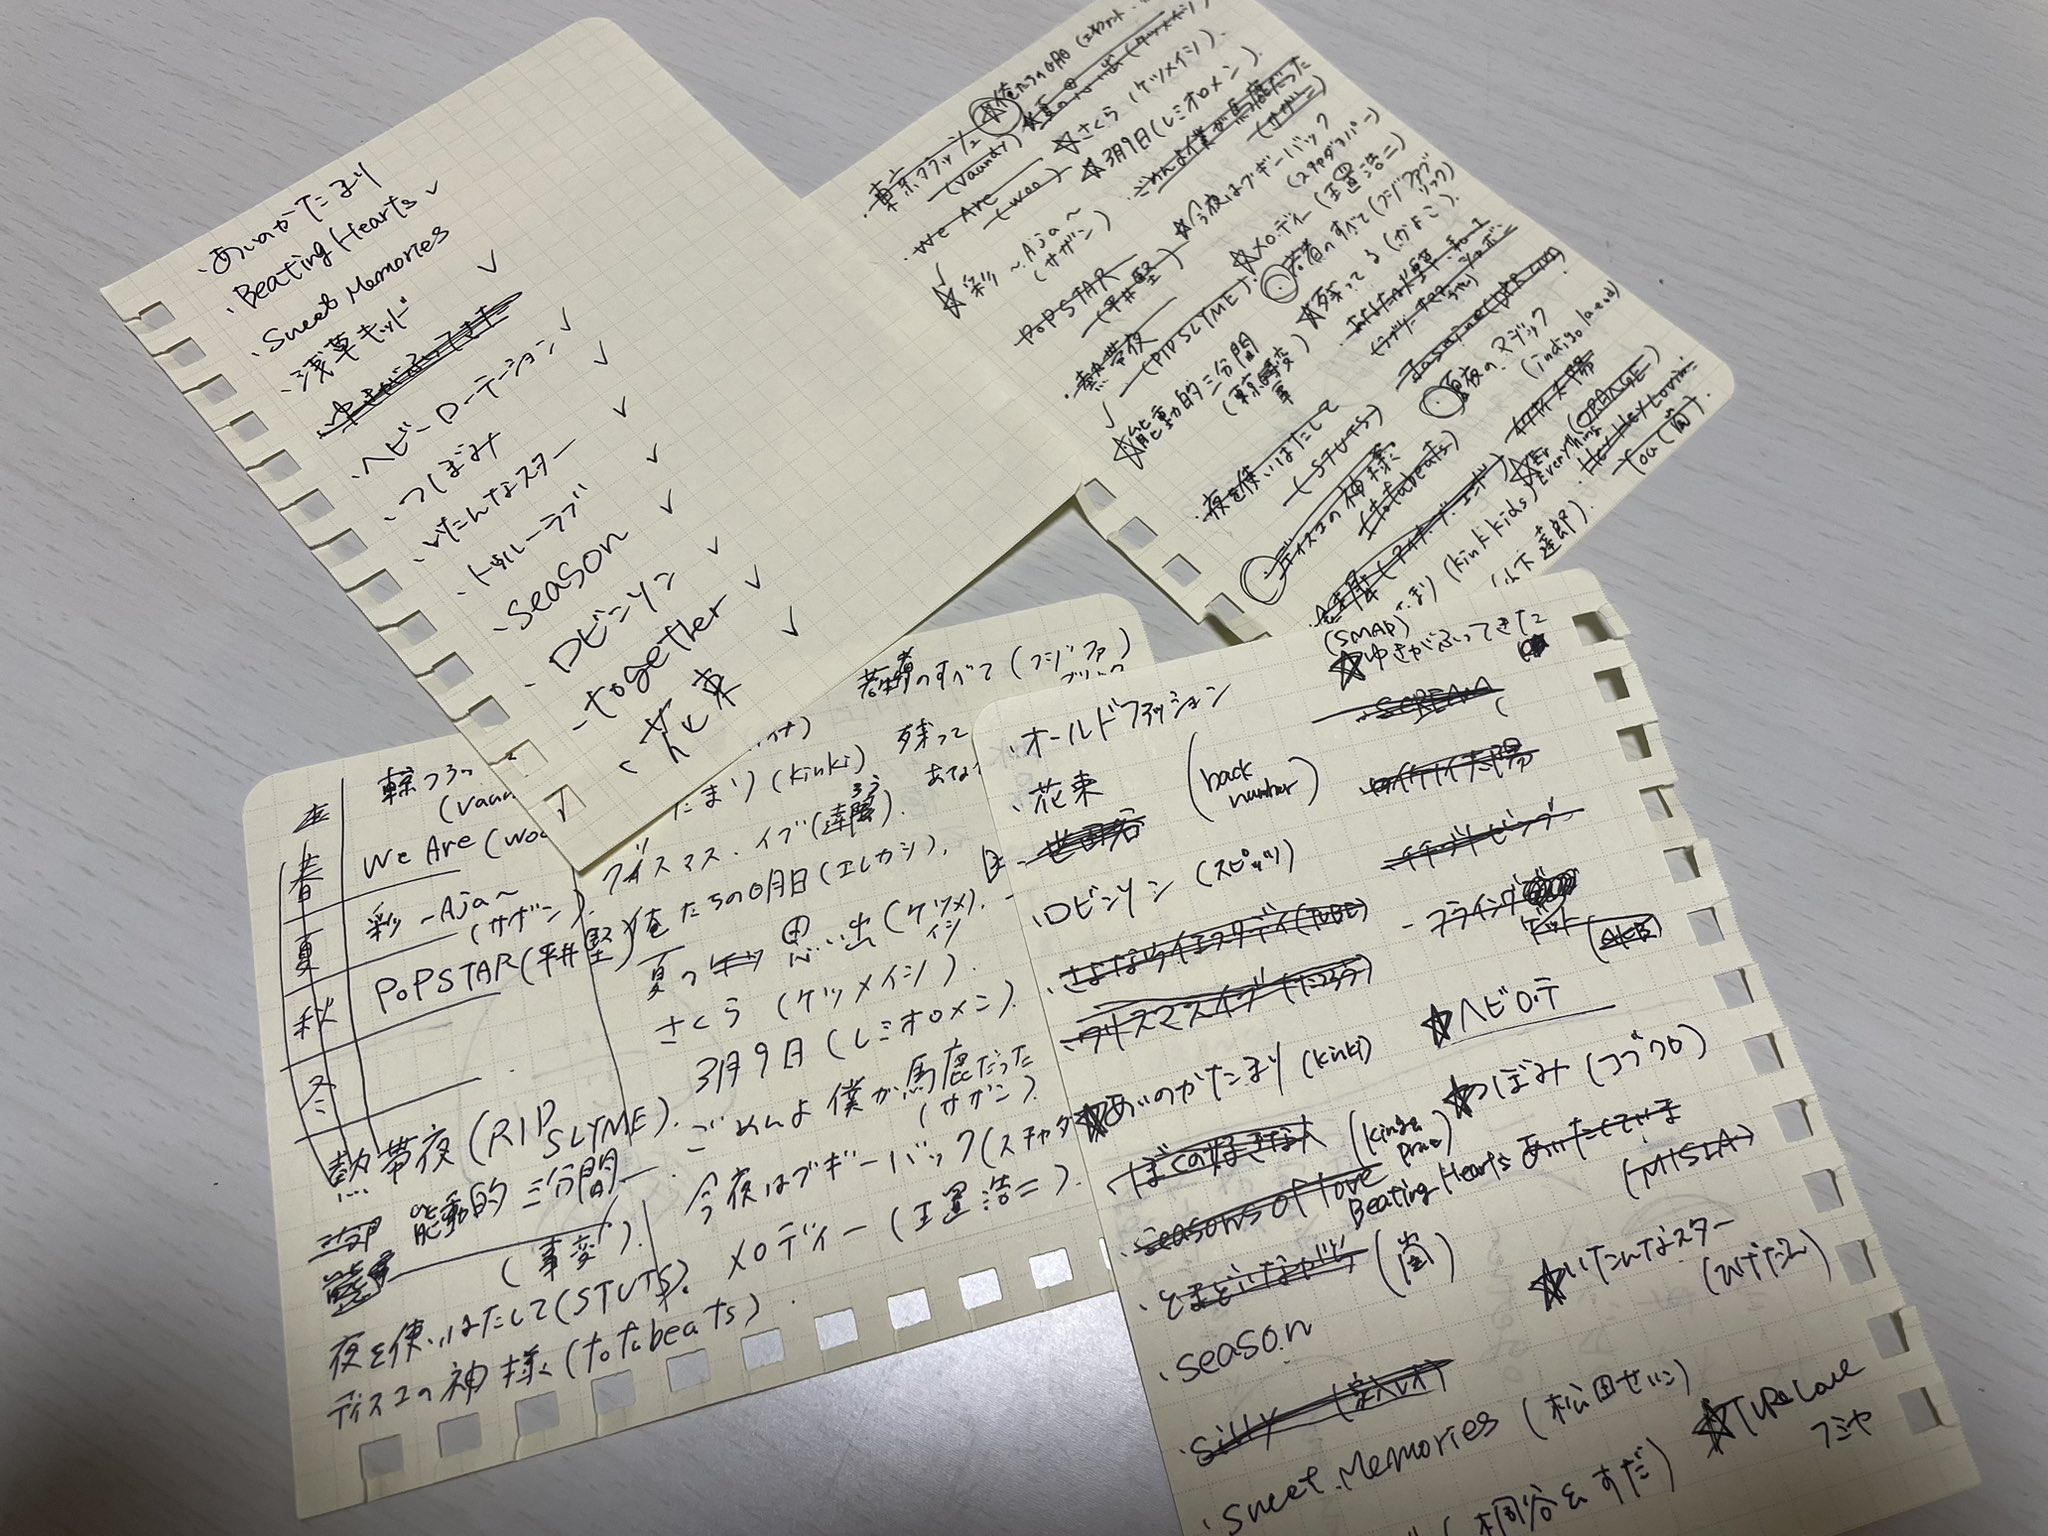 ・あいのかたまり
・Beating Hearts ✓
・Sweet Memories
・浅草キッド ✓
・ゆきがふってきた
・ヘビーローテーション ✓
・つぼみ ✓
・いたんなスター ✓
・トゥルーラブ ✓
・season ✓
・ロビンソン ✓
・together ✓
・花束 ✓
・東京フラッシュ
(Vaundy)
・We Are
(woo)
✓
☆彩 ~Aja~
(サザン)
POPSTAR
(平井堅)
・熱帯夜
(RIP SLYME)
✓
☆能動的三分間
(東京事変)
・夜を使いはたして
(STUTS)
・ディスコの神様
(tofubeats)
☆俺たちの明日
☆さくら (ケツメイシ).
☆3月9日 (レミオロメン)
・ごめんよ僕が馬鹿だった
(サザン)
☆今夜はブギーバック
(スチャダラパー)
☆メロディー (玉置浩二)
若者のすべて (フジファブリック)
☆残ってる (
Jasmine
夜のマジック
(indigo la end)
(ORANGE)
Everything
・Hey Hey Lovin'
You (嵐).
(kinki kids)
(山下達郎).
春
夏
秋
冬
(Vaun
We Are (woo
彩 ~Aja~
(サザン).
POPSTAR (平井堅)
熱帯夜 (RIP SLYME).
能動的三分間
(事変).
夜を使いはたして (STUTS).
ディスコの神様 (tofubeats).
若者のすべて (フジファブリック
たまり (kinki)
残って
クリスマス・イブ (達郎).
俺たちの明日 (エレカシ).
夏の思い出 (ケツメイシ).
さくら (ケツメイシ).
3月9日 (レミオロメン).
ごめんよ僕が馬鹿だった
(サザン).
今夜はブギーバック (スチャダ
メロディー (玉置浩二).
・オールドファッション
・花束
(back number)
世田谷
・ロビンソン (スピッツ)
・さよならイエスタデイ (TUBE)
・クリスマスイブ (たつろう)
☆あいのかたまり (kinki)
・ぼくの好きな人
(King & Prince)
・Seasons of love
Beating Hearts
・とまどいながら (嵐)
・season
・silly (家入レオ)
・Sweet Memories (松田せいこ)
(桐谷&すだ)
(SMAP)
☆ゆきがふってきた
・SCREAM
・イケナイ太陽
・フライングゲット
(AKB)
☆ヘビロテ
☆つぼみ (コブクロ)
あいたくていま
(MISIA)
☆いたんなスター
(ひげだん)
☆TURE Love
フミヤ